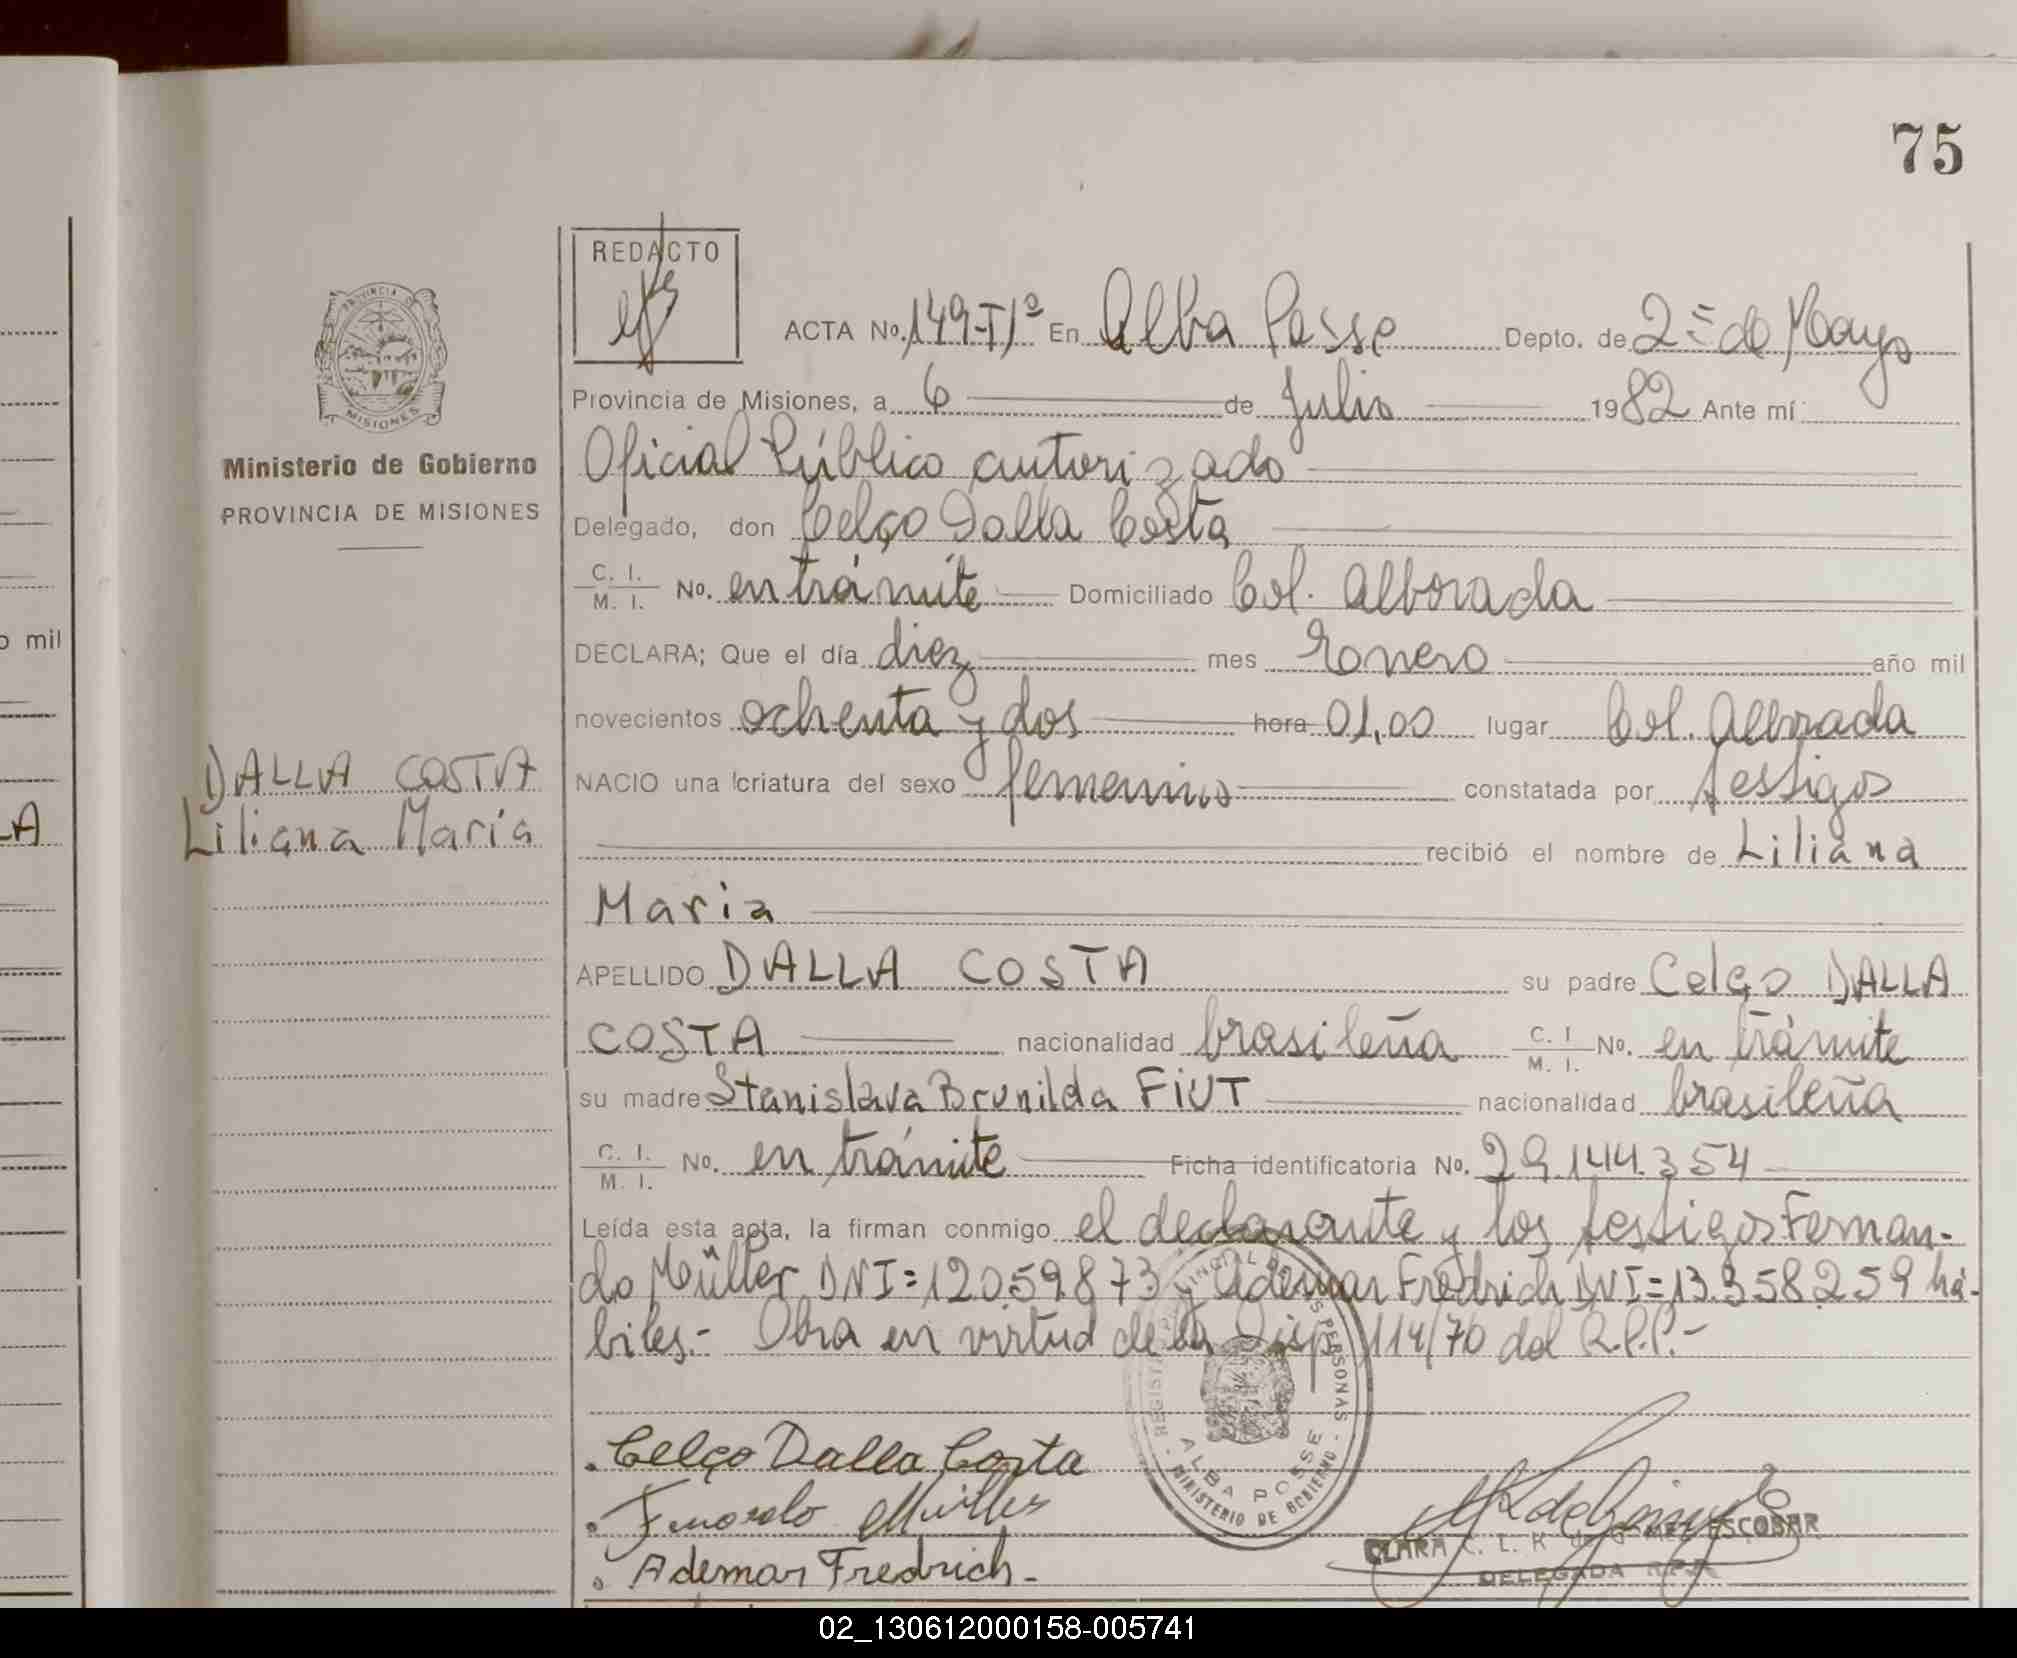 75
REDACTO
ACTA No. 149-Tº1º En Alba Posse Depto. de 2º de Mayo
Provincia de Misiones, a 6 de Julio 1982 Ante mí:
Ministerio de Gobierno
PROVINCIA DE MISIONES
Oficial Público autorizado
Delegado, don Celço Dalla Costa
C. I. M. I. No. en trámite Domiciliado Col. Alborada
DECLARA; Que el día diez mes Enero año mil
novecientos ochenta y dos hora 01,00 lugar Col. Alborada
DALLA COSTA
Liliana María
NACIO una criatura del sexo femenino constatada por testigos
recibió el nombre de Liliana
Maria
APELLIDO DALLA COSTA su padre Celço DALLA
COSTA nacionalidad brasileña C. I. M. I. No. en trámite
su madre Stanislava Brunilda FIUT nacionalidad brasileña
C. I. M. I. No. en trámite Ficha identificatoria No. 29.144.354
Leída esta acta, la firman conmigo el declarante y los testigos Fernan-
do Müller DNI=12.059.873 y Ademar Fredrich DNI=13.358.259 há-
biles.- Obra en virtud de la Disp. 114/70 del R.P.P.-
REGISTRO PROVINCIAL DE LAS PERSONAS
ALBA POSSE
MINISTERIO DE GOBIERNO
Celço Dalla Costa
Fernando Müller
Ademar Fredrich.-
CLARA C. L. K de GOMEZ ESCOBAR
DELEGADA R.P.P.
o mil
LA
PROVINCIA D
MISIONES
02_130612000158-005741